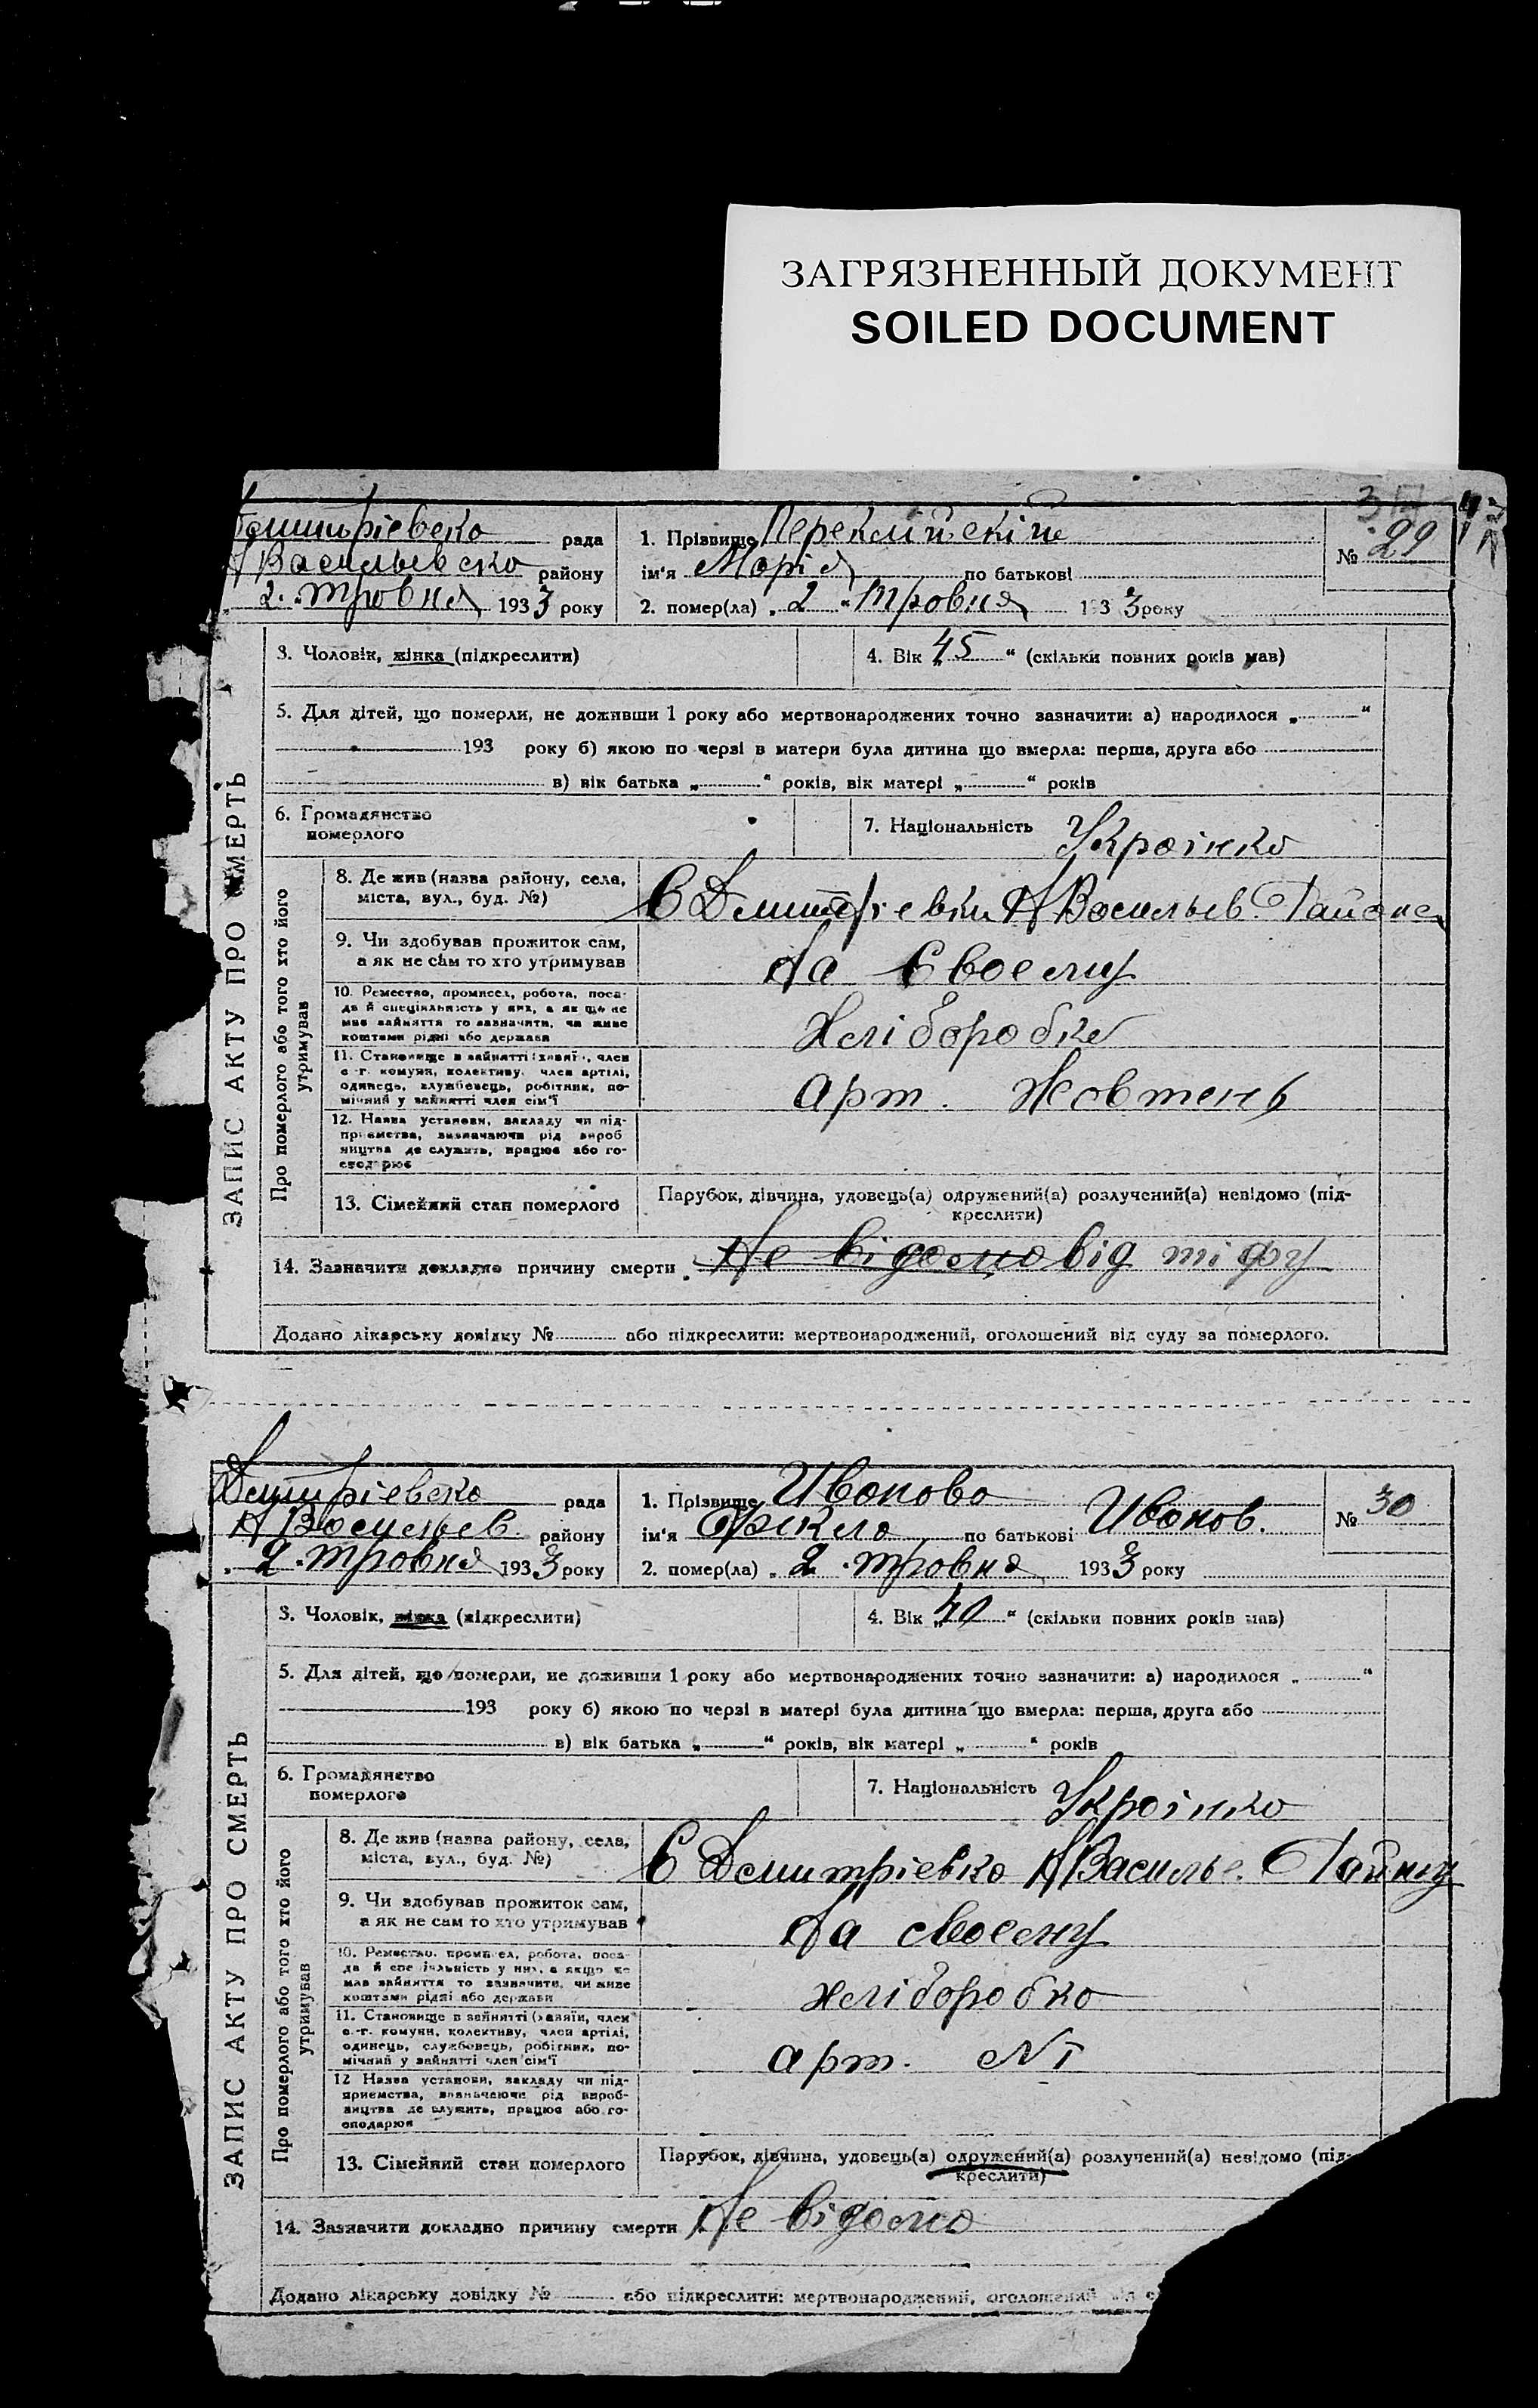 ЗАГРЯЗНЕННЫЙ ДОКУМЕНТ
SOILED DOCUMENT
рада
Н Васильевско району
2. Тровня 1933 року
1. Прізвище
ім'я Марія по батькові
2. помер(ла) „ 2 “ Тровня 1933 року
№ 29
3. Чоловік, жінка (підкреслити)
4. Вік „ 45 “ (скільки повних років мав)
5. Для дітей, що померли, не доживши 1 року або мертвонароджених точно зазначити: а) народилося „ “
193 року б) якою по черзі в матери була дитина що вмерла: перша, друга або
в) вік батька „ “ років, вік матері „ “ років
6. Громадянство
померлого
7. Національність Українка
ЗАПИС АКТУ ПРО СМЕРТЬ
Про померлого або того хто його
утримував
8. Де жив (назва району, села,
міста, вул., буд. №)
С Дмитрієвки Н Васильев. Района
9. Чи здобував прожиток сам,
а як не сам то хто утримував
На Своему
10. Ремество, промисел, робота, поса-
да й спеціяльність у них, а як що не
мав зайняття то зазначити, чи живе
коштами рідні або держави
Хліборобка
11. Становище в зайнятті (хазяї, член
с.-г. комуни, колективу, член артілі,
одинець, службовець, робітник, по-
мічний у зайнятті член сім'ї
арт. Жовтень
12. Назва установи, закладу чи під-
приємства, визначаючи рід вироб
ництва де служить, працює або го-
сподарює
13. Сімейний стан померлого
Парубок, дівчина, удовець(а) одружений(а) розлучений(а) невідомо (під-
креслити)
14. Зазначити докладно причину смерти „ Не відомо від тіфу
Додано лікарську довідку № або підкреслити: мертвонароджений, оголошений від суду за померлого.
Дмитрієвско рада
Н Васильев району
„ 2. тровня 1933 року
1. Прізвище Иванова
ім'я Фекла по батькові Иванов.
2. помер(ла) „ 2. тровня 1933 року
№ 30
3. Чоловік, жінка (підкреслити)
4. Вік „ 40 “ (скільки повних років мав)
5. Для дітей, що померли, не доживши 1 року або мертвонароджених точно зазначити: а) народилося „ “
193 року б) якою по черзі в матері була дитина що вмерла: перша, друга або
в) вік батька „ “ років, вік матері „ “ років
6. Громадянство
померлого
7. Національність Українко
ЗАПИС АКТУ ПРО СМЕРТЬ
Про померлого або того хто його
утримував
8. Де жив (назва району, села,
міста, вул., буд. №)
С Дмитрієвка Н Василье.
9. Чи здобував прожиток сам,
а як не сам то хто утримував
На своему
10. Ремество, промисел, робота, поса-
да й спеціяльність у них, а якщо не
мав зайняття то зазначити, чи живе
коштами рідні або держави
хліборобка
11. Становище в зайнятті (хазяїн, член
с.-г. комуни, колективу, член артілі,
одинець, службовець, робітник, по-
мічний у зайнятті член сім'ї
арт.
12 Назва установи, закладу чи під-
приємства, визначаючи рід вироб-
ництва де служить, працює або го-
сподарює
13. Сімейний стан померлого
Парубок, дівчина, удовець(а) одружений(а) розлучений(а) невідомо (під-
креслити)
14. Зазначити докладно причину смерти Не відомо
Додано лікарську довідку № або підкреслити: мертвонароджений, оголошений від с